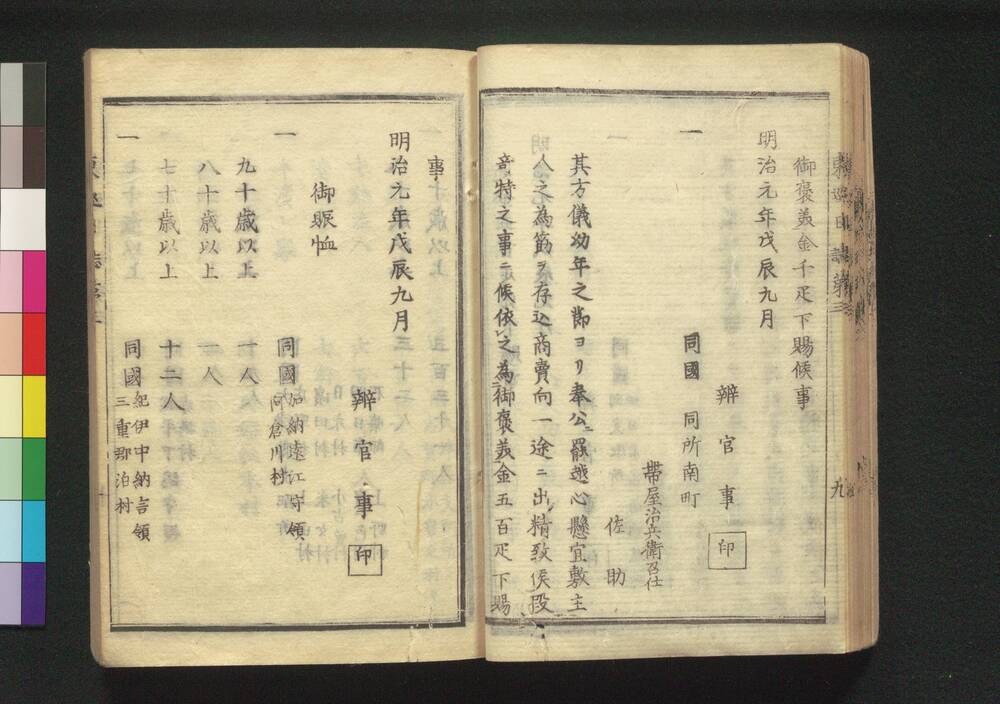 御褒美金千疋下賜候事
明治元年戊辰九月
辨官事 印
一 同國 同所南町
帶屋治兵衛召仕
佐助
其方儀幼年之節ヨリ奉公ニ罷越心懸宜敷主
人之為筋ヲ存込商賣向一途ニ出精致候段
奇特之事ニ候依之為御褒美金五百疋下賜
事
明治元年戊辰九月
辨官事 印
御賑恤
一 同國 加納遠江守領
河倉川村
九十歳以上 一人
八十歳以上 一人
七十歳以上 十二人
一 同國 紀伊中納言領
三重郡泊村
東巡日誌第三
九